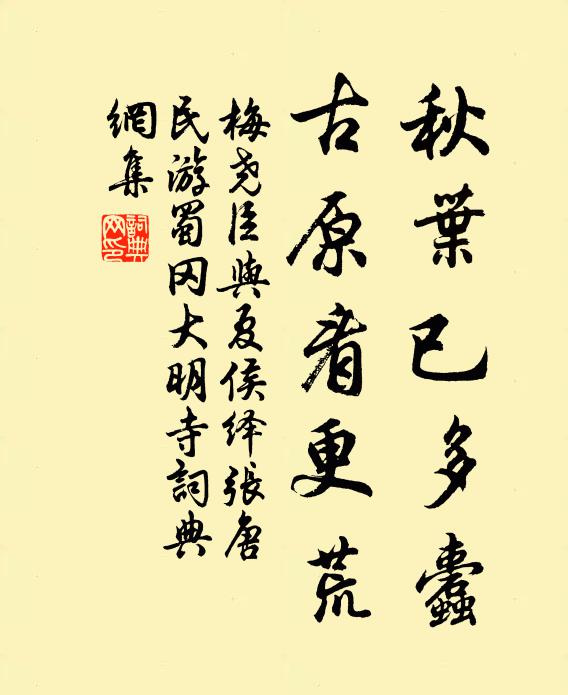 秋葉已多蠹
古原看更荒
梅尧臣與夏侯绎張唐
民游蜀冈大明寺詞典
網集
詞典
网印